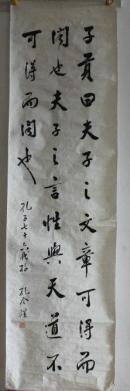 子貢曰夫子之文章可得而
聞也夫子之言性與天道不
可得而聞也
孔子七十六代孫 孔令